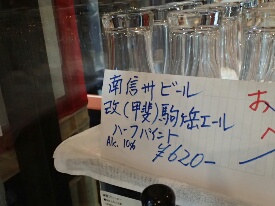 南信州ビール
改(甲斐)駒岳エール
ハーフパイント
Alc. 10%
¥620-
お
へ